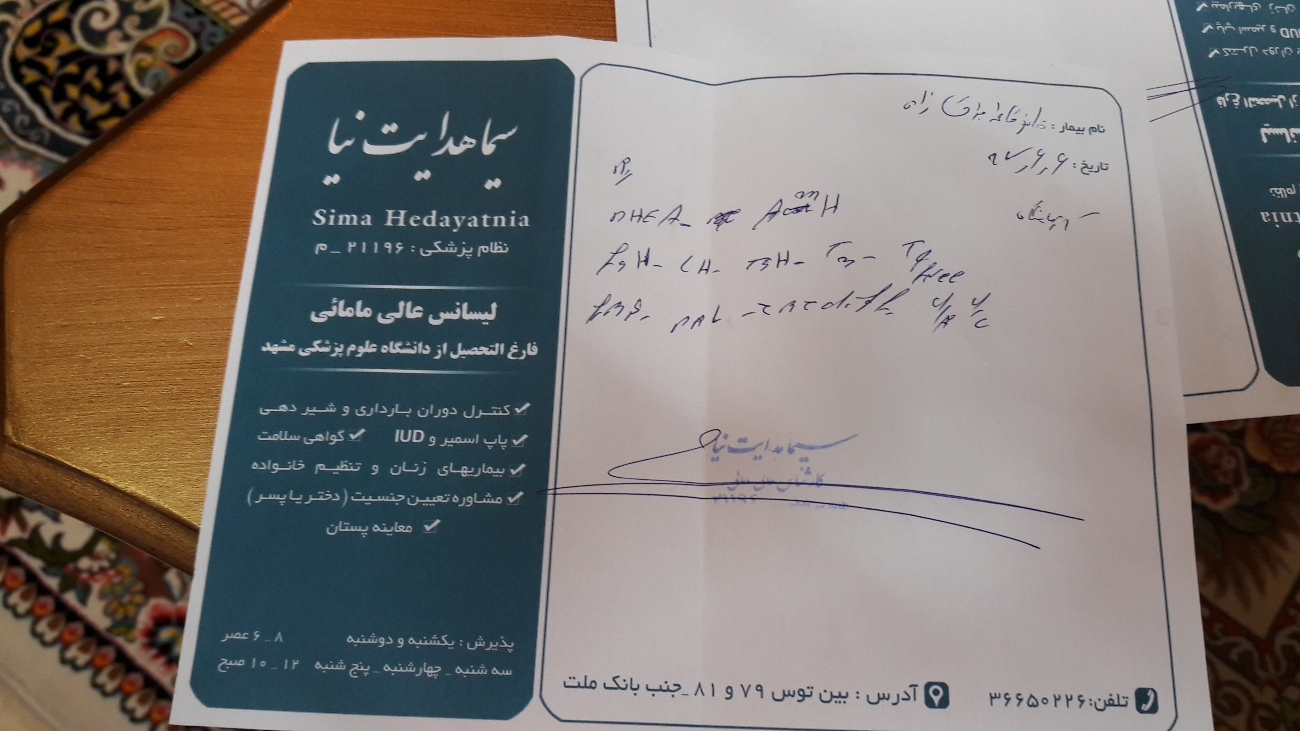 سیما هدایت نیا
Sima Hedayatnia
نظام پزشکی : ۲۱۱۹۶ _ م
لیسانس عالی مامائی
فارغ التحصیل از دانشگاه علوم پزشکی مشهد
کنترل دوران بارداری و شیر دهی
پاپ اسمیر و IUD گواهی سلامت
بیماریهای زنان و تنظیم خانواده
مشاوره تعیین جنسیت (دختر یا پسر)
معاینه پستان
پذیرش : یکشنبه و دوشنبه ۸ _ ۶ عصر
سه شنبه _ چهارشنبه _ پنج شنبه ۱۲ _ ۱۰ صبح
نام بیمار :
تاریخ : ۹۷,۶,۶
آزمایشگاه
DHEA - AmH
FSH - LH - TSH - T3 - T4 free
U/A U/C
سیما هدایت نیا
آدرس : بین توس ۷۹ و ۸۱ _جنب بانک ملت
تلفن:۳۶۶۵۰۲۲۶